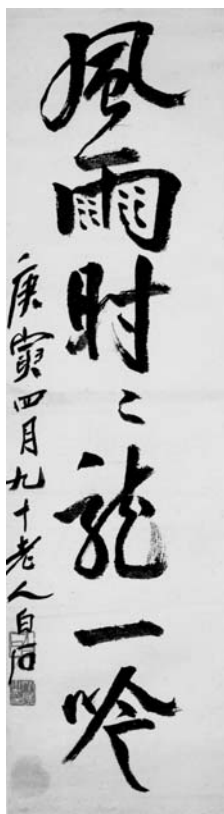 風雨时々龍一吟
庚寅四月九十老人白石